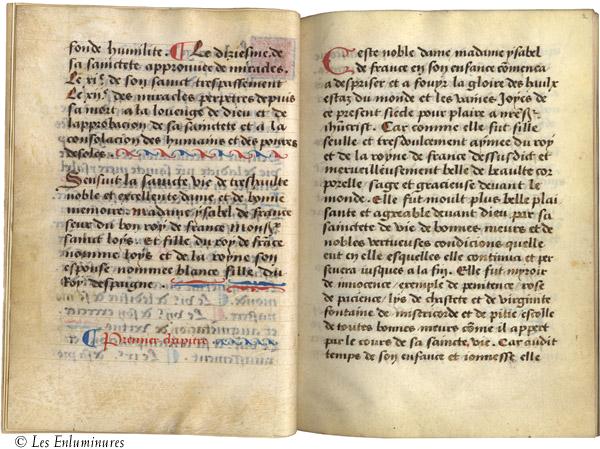 fonde humilite. ¶ Le diziesme de
sa sainctete approuuee de miracles.
Le xie. de son sainct trespassement
Le xiie. des miracles perpetrez depuis
sa mort a la louenge de dieu et de
lapprobacion de sa sainctete et a la
consolacion des humains et des poures
desolez.
Sensuit la saincte vie de treshaulte
noble et excellente dame et de bonne
memoire madame ysabel de france
seur du bon roy de france monsr
sainct loys. Et fille du roy de frāce
nomme loys et de la royne son
espouse nommee blance fille du
Roy despaigne.
¶ Premier chapitre
Ceste noble dame madame ysabel
de france en son enfance cōmenca
a despriser et a fouyr la gloire des haulx
estaz du monde et les vaines Joyes de
ce present siecle pour plaire a nr̄e sr
ihūcrist. Car comme elle fut fille
seulle et tresdoulcement aymee du roy
et de la royne de france dessusdict et
merueilleusement belle de beaulte cor
porelle sage et gracieuse deuant le
monde. Elle fut moult plus belle plai
sante et agreable deuant dieu par sa
sainctete de vie de bonnes meurs et de
nobles vertueuses condicions quelle
eut en elle esquelles elle continua et per
seuera iusques a la fin. Elle fut myroir
de innocence exemple de penitence rose
de pacience lys de chastete et de virginite
fontaine de misericorde et de pitie escolle
de toutes bonnes meurs cōme il appert
par le cours de sa saincte vie. Car audit
temps de son enfance et ionnesse elle
© Les Enluminures